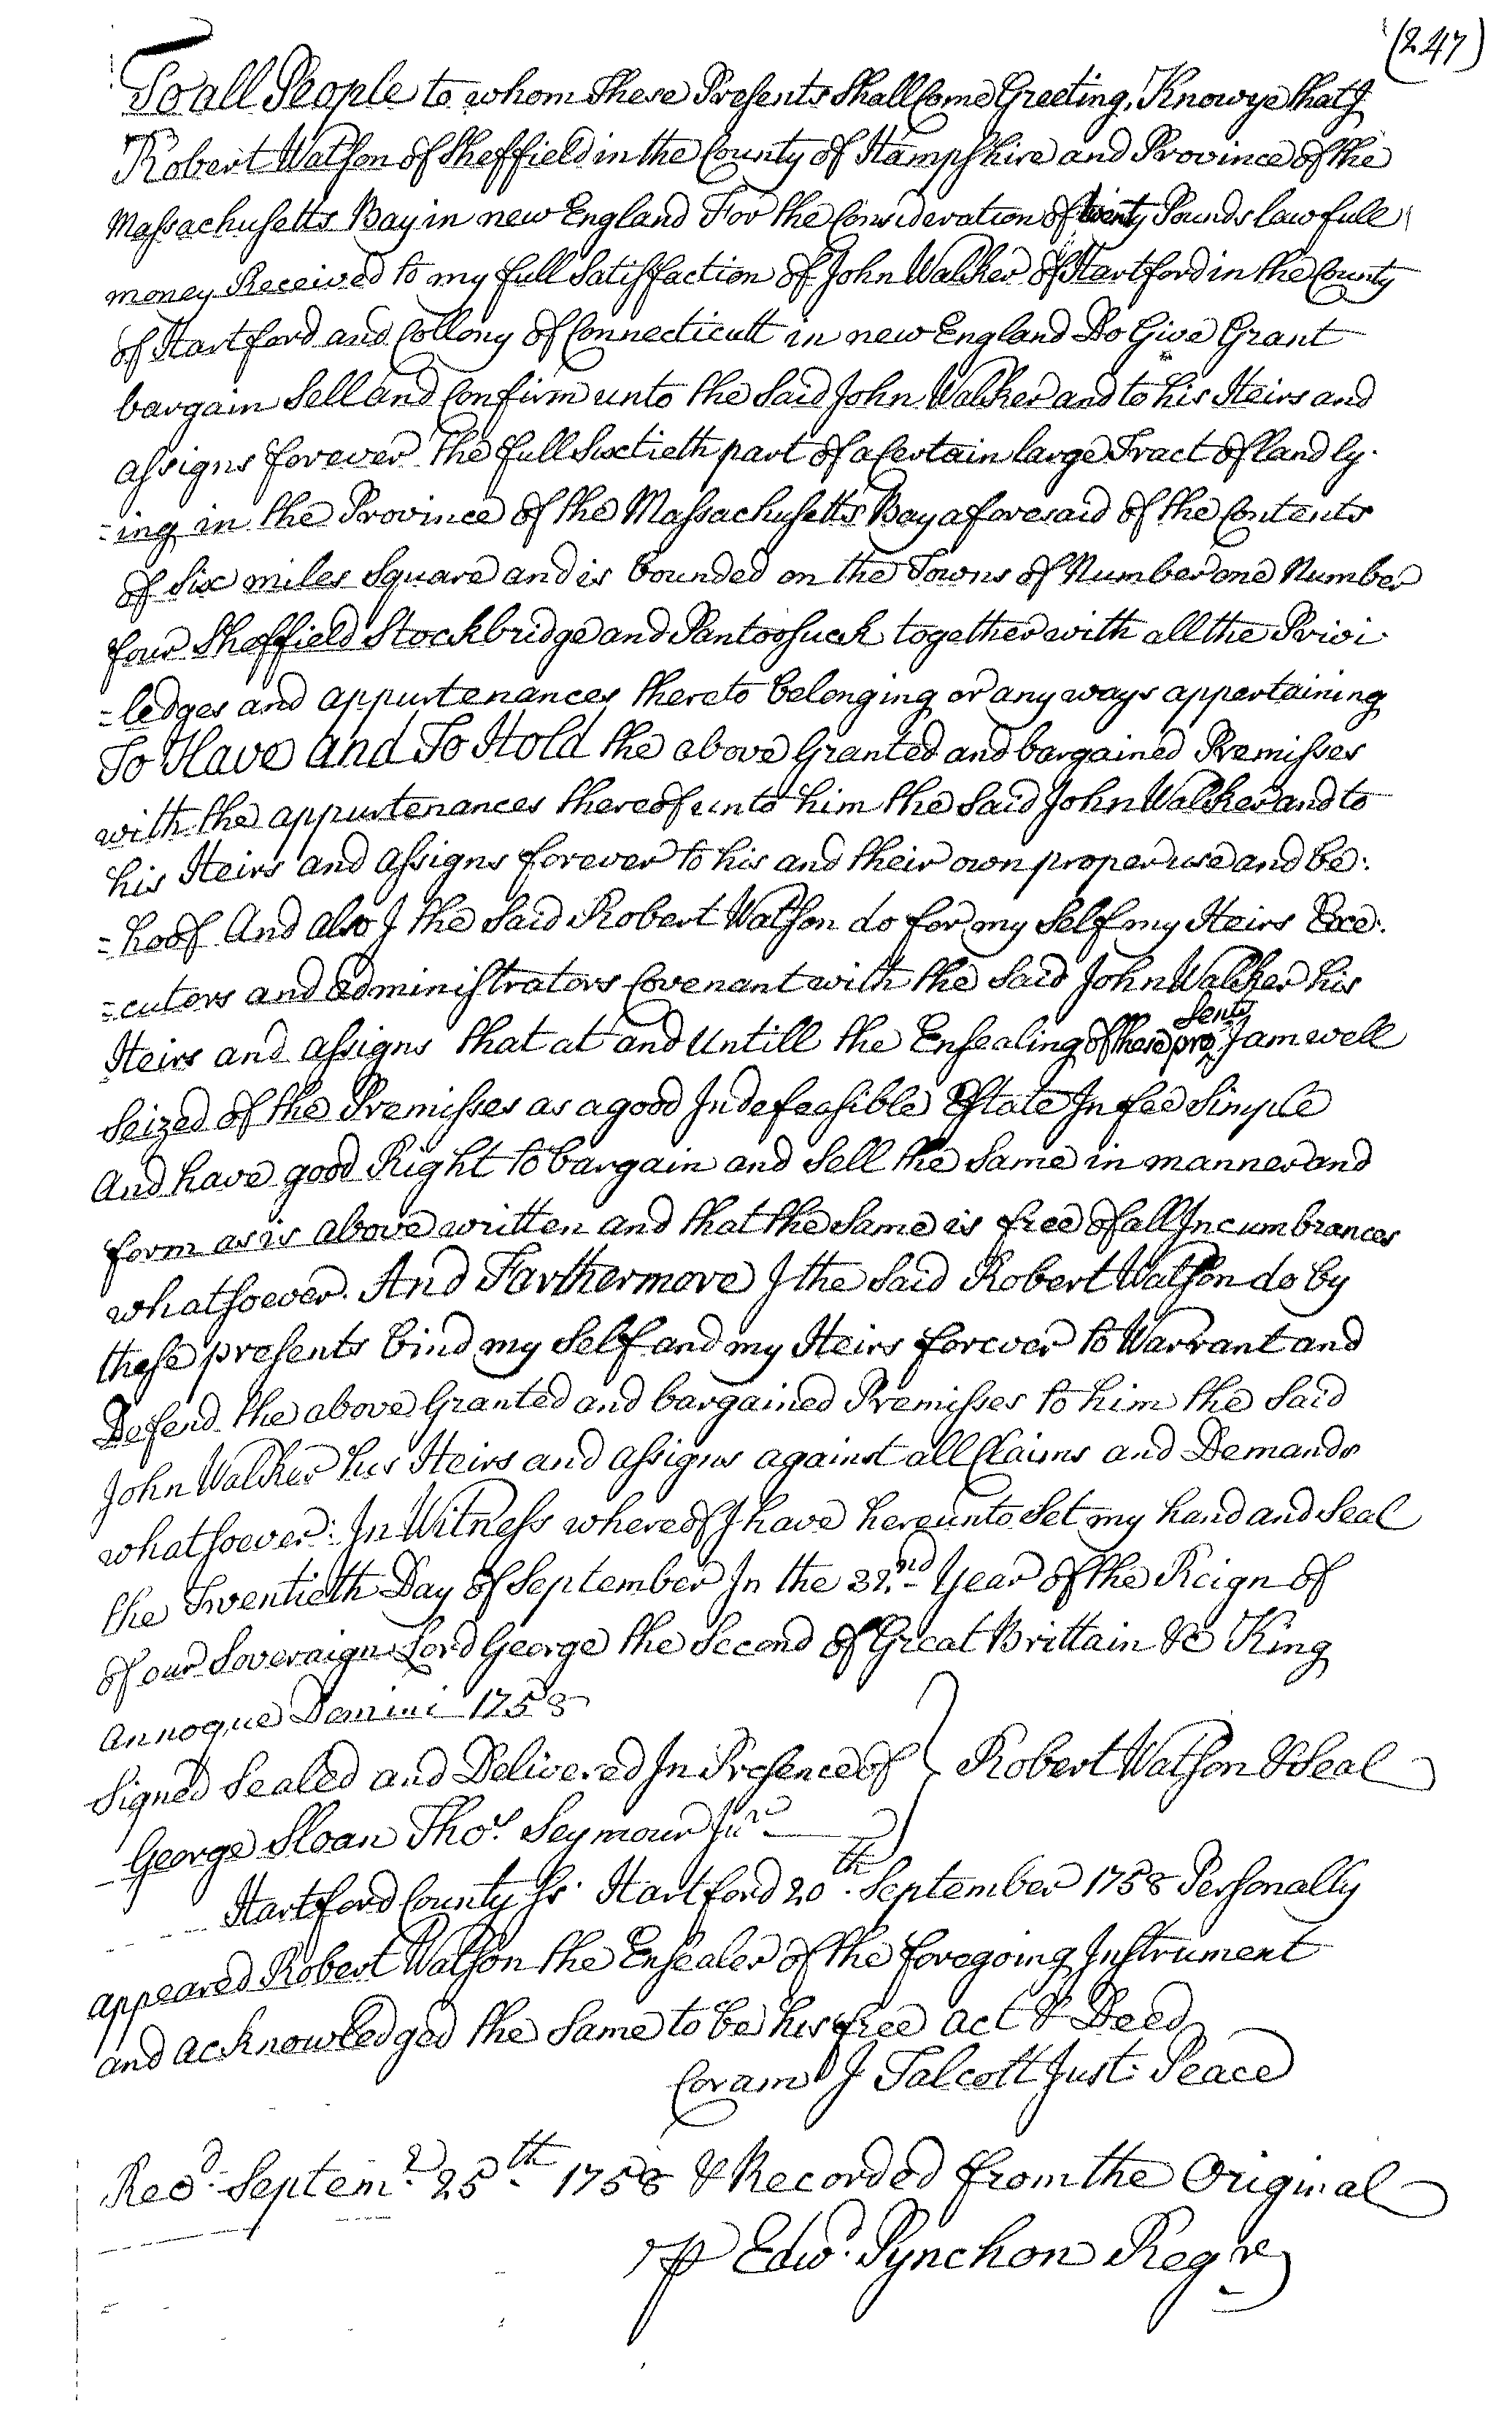 (247)
To all People to whom These Presents Shall Come Greeting, Know ye that I
Robert Watson of Sheffield in the County of Hampshire and Province of the
Massachusetts Bay in new England For the Consideration of twenty Pounds lawfull
money Received to my full Satisfaction of John Walker of Hartford in the County
of Hartford and Collony of Connecticutt in new England Do Give Grant
bargain Sell and Confirm unto the Said John Walker and to his Heirs and
assigns forever The full Sixtieth part of a Certain large Tract of land ly-
-ing in the Province of the Massachusetts Bay aforesaid of the Contents
of Six miles Square and is bounded on the Towns of Number one Number
four Sheffield Stockbridge and Pantoosuck together with all the Privi-
-ledges and appurtenances thereto belonging or any ways appertaining
To Have and To Hold the above Granted and bargained Premisses
with the appurtenances thereof unto him the Said John Walker and to
his Heirs and assigns forever to his and their own proper use and be:
-hoof And also I the Said Robert Watson do for my Self my Heirs Exe:
-cutors and administrators Covenant with the Said John Walker his
Heirs and assigns that at and Untill the Ensealing of these presents I am well
Seized of the Premisses as a good Indefeasible Estate In fee Simple
And have good Right to bargain and Sell the Same in manner and
form as is above written and that the Same is free of all Incumbrances
whatsoever. And Farthermore I the Said Robert Watson do by
these presents bind my Self and my Heirs forever to Warrant and
Defend the above Granted and bargained Premisses to him the Said
John Walker his Heirs and assigns against all Claims and Demands
whatsoever: In Witness whereof I have hereunto Set my hand and Seal
the Twentieth Day of September In the 32nd Year of the Reign of
of our Soveraign Lord George the Second of Great Brittain &c King
Annoque Domini 1758
Signed Sealed and Delivered In Presence of } Robert Watson & Seal
George Sloan Thos. Seymour Junr
Hartford County Ss. Hartford 20th. September 1758 Personally
appeared Robert Watson the Ensealer of the foregoing Instrument
and acknowledged the Same to be his free act & Deed
Coram J Talcott Just: Peace
Recd. Septemr. 25th. 1758 & Recorded from the Original
p Edwd. Pynchon Regr